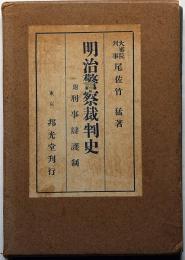 大審院
判事 尾佐竹 猛著
明治警察裁判史
附 刑事辯護制
東京 邦光堂刊行